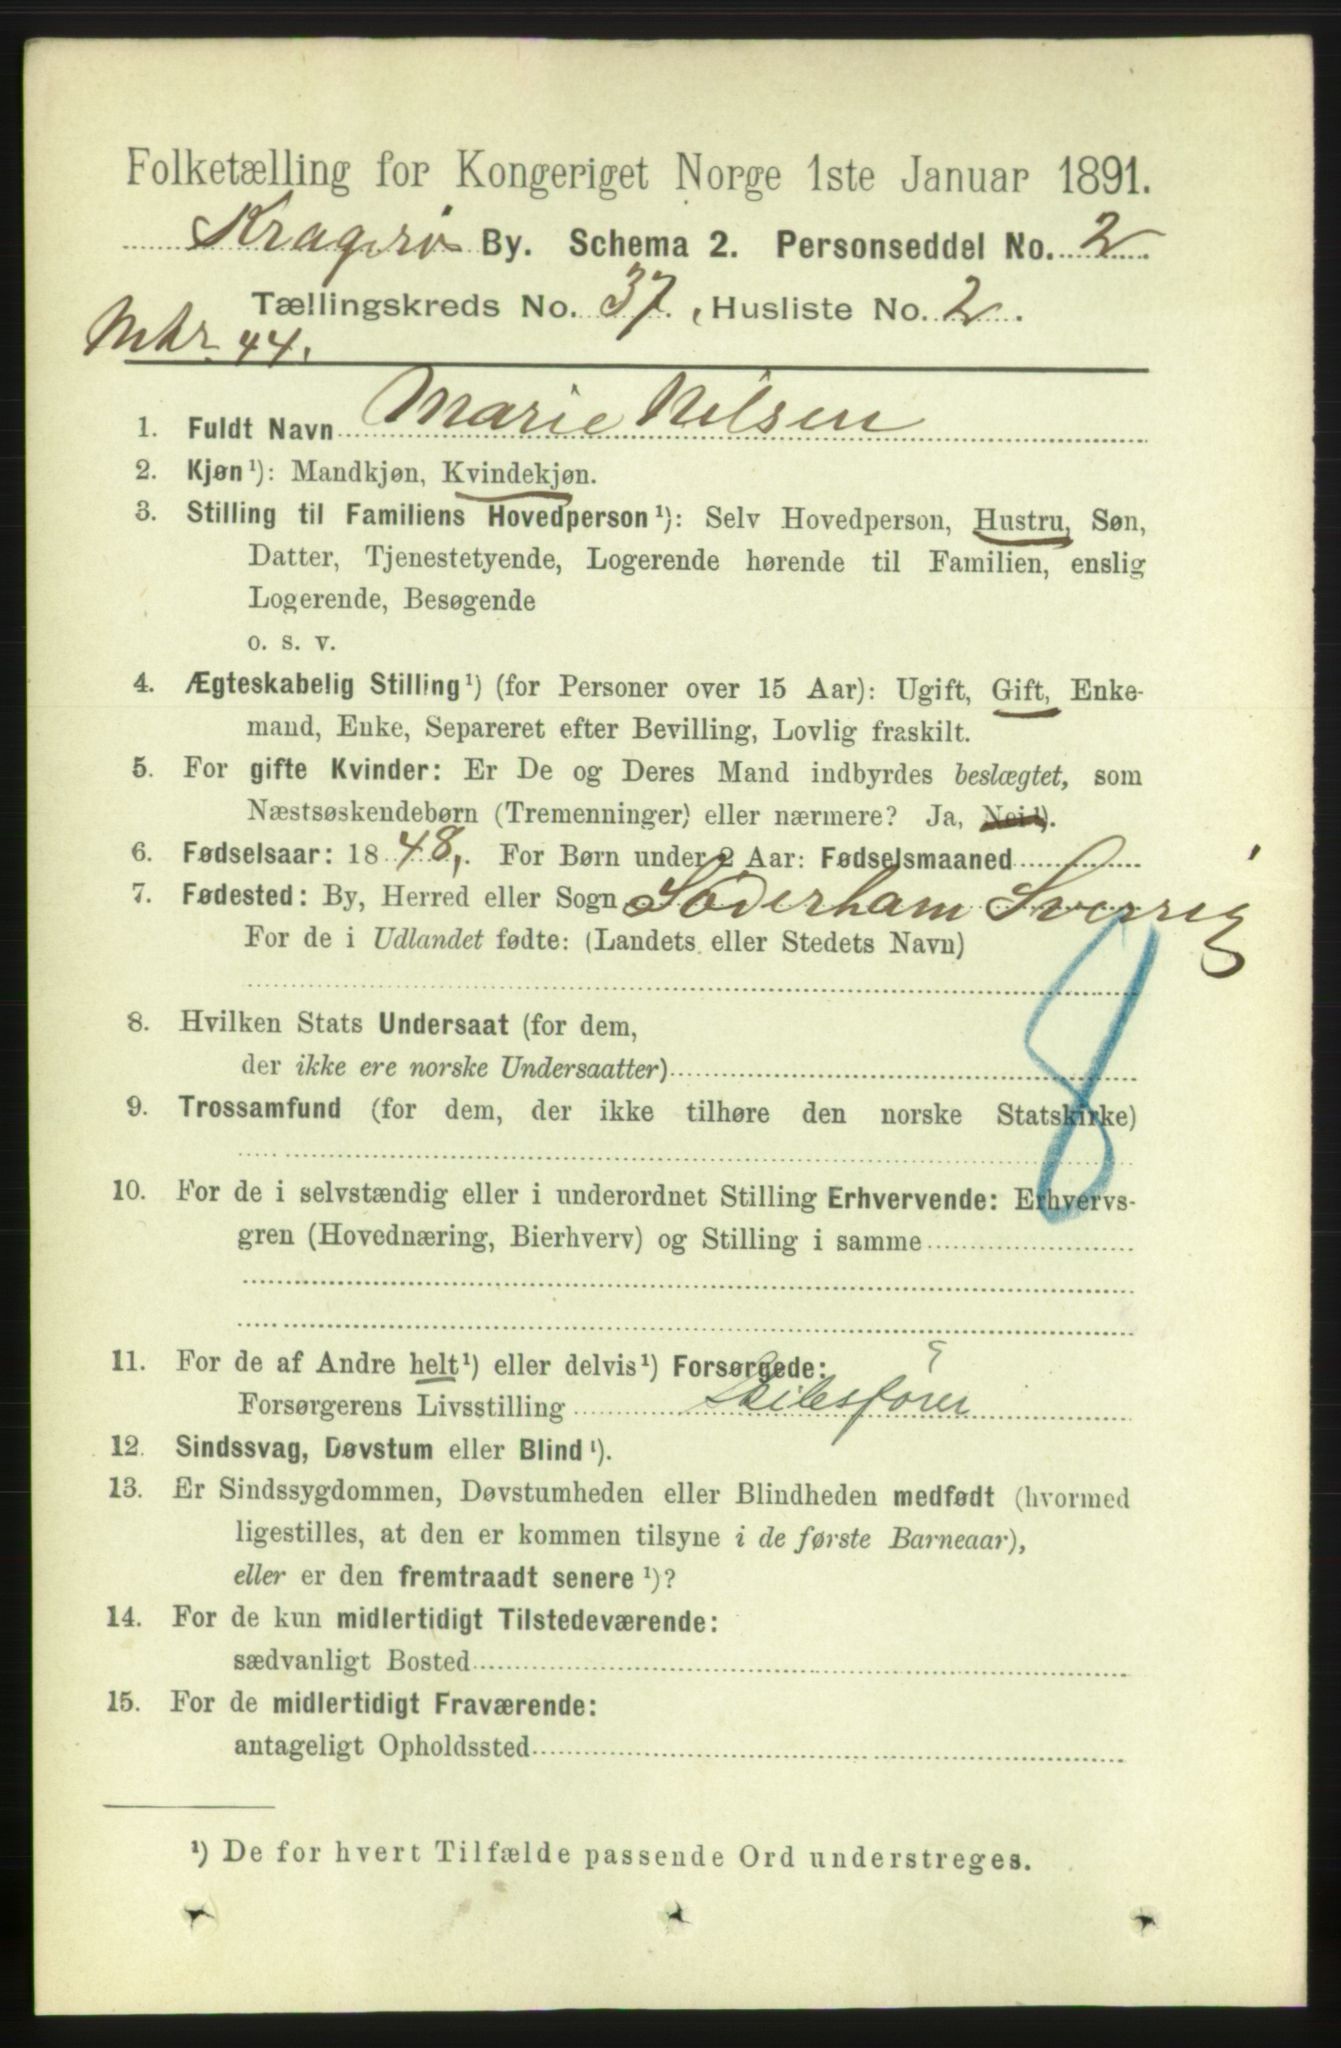 Folketælling for Kongeriget Norge 1ste Januar 1891.
Kragerø By. Schema 2. Personseddel No. 2
Tællingskreds No. 37, Husliste No. 2.
Mtr. 44.
1. Fuldt Navn Marie Nilsen
2. Kjøn¹): Mandkjøn, Kvindekjøn.
3. Stilling til Familiens Hovedperson¹): Selv Hovedperson, Hustru, Søn,
Datter, Tjenestetyende, Logerende hørende til Familien, enslig
Logerende, Besøgende
o. s. v.
4. Ægteskabelig Stilling¹) (for Personer over 15 Aar): Ugift, Gift, Enke-
mand, Enke, Separeret efter Bevilling, Lovlig fraskilt.
5. For gifte Kvinder: Er De og Deres Mand indbyrdes beslægtet, som
Næstsøskendebørn (Tremenninger) eller nærmere? Ja, Nei¹).
6. Fødselsaar: 1848,. For Børn under 2 Aar: Fødselsmaaned
7. Fødested: By, Herred eller Sogn Söderham Sverrig
For de i Udlandet fødte: (Landets eller Stedets Navn)
8
8. Hvilken Stats Undersaat (for dem,
der ikke ere norske Undersaatter)
9. Trossamfund (for dem, der ikke tilhøre den norske Statskirke)
10. For de i selvstændig eller i underordnet Stilling Erhvervende: Erhvervs-
gren (Hovednæring, Bierhverv) og Stilling i samme
11. For de af Andre helt¹) eller delvis¹) Forsørgede:
Forsørgerens Livsstilling Skibsfører
12. Sindssvag, Døvstum eller Blind¹).
13. Er Sindssygdommen, Døvstumheden eller Blindheden medfødt (hvormed
ligestilles, at den er kommen tilsyne i de første Barneaar),
eller er den fremtraadt senere¹)?
14. For de kun midlertidigt Tilstedeværende:
sædvanligt Bosted
15. For de midlertidigt Fraværende:
antageligt Opholdssted
¹) De for hvert Tilfælde passende Ord understreges.